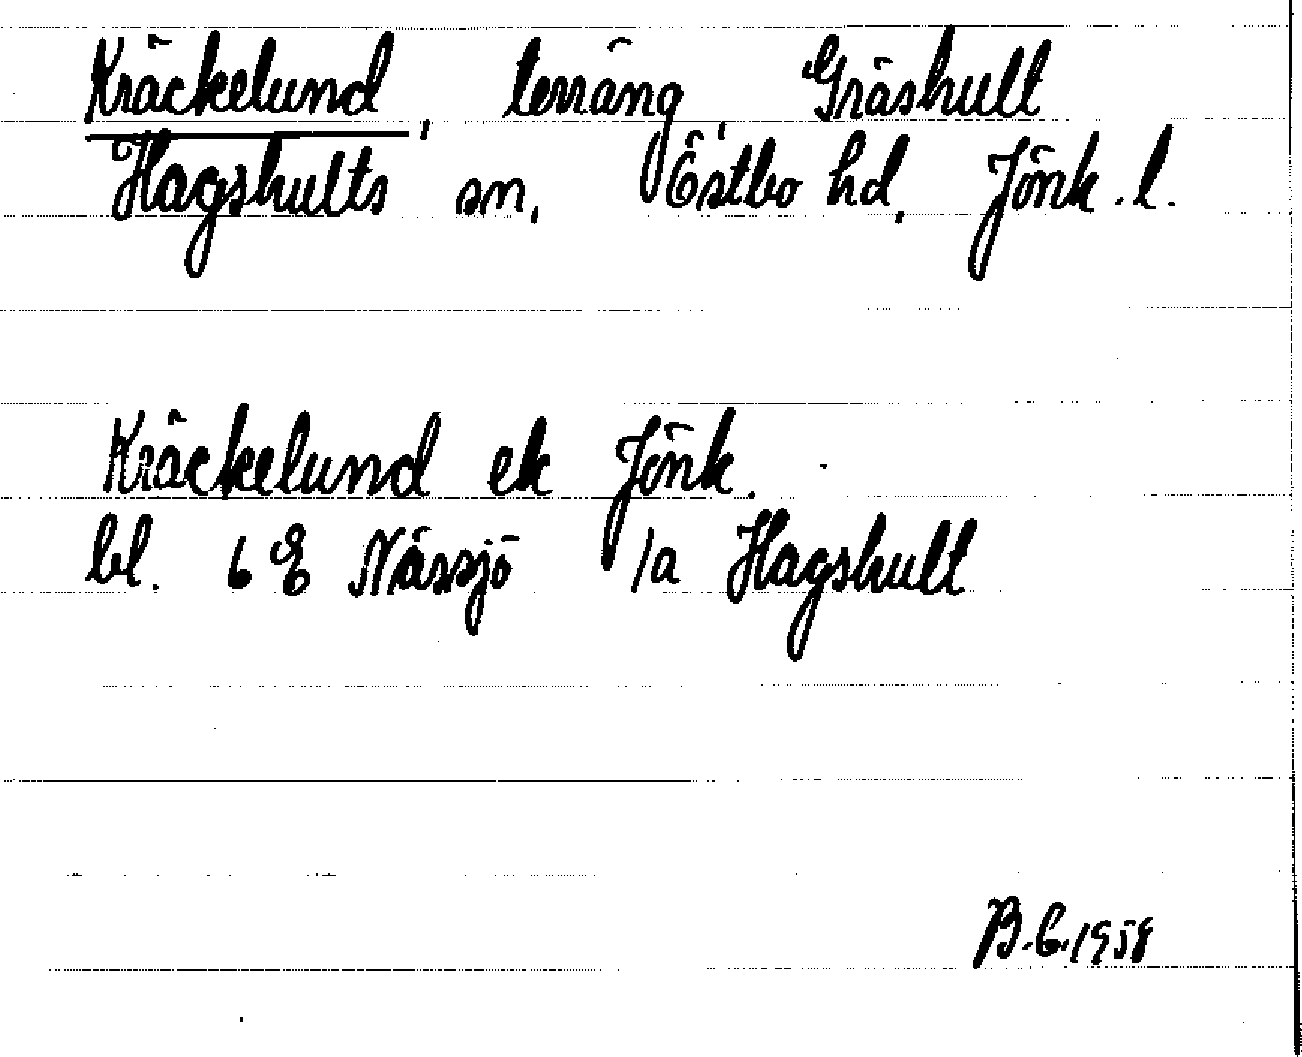 Kräckelund, terräng, Gräshult
Hagshults sn, Östbo hd, Jönk. l.
Kräckelund ek Jönk.
bl. 6 E Nässjö 1a Hagshult
B.C. 1958